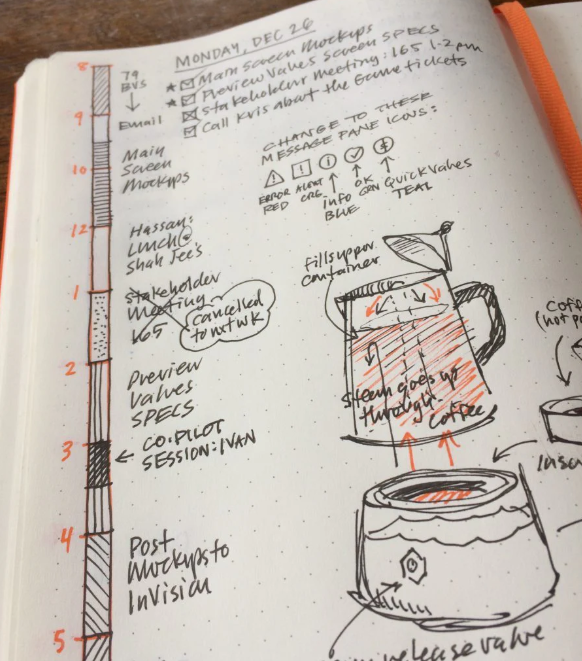 MONDAY, DEC 26
★ Main Screen Mockups
★ Preview Values Screen SPECS
Stakeholder Meeting: 165 1-2pm
Call Kris about the Game tickets
8
79
BVS
Email
9
Main
Screen
Mockups
10
12
Hassan:
Lunch @
Shah Jee's
1
Stakeholder
Meeting
165
cancelled
to nxt wk
2
Preview
Values
SPECS
3
CO-PILOT
SESSION: IVAN
4
Post
Mockups to
InVision
5
CHANGE TO THESE
MESSAGE PANE ICONS:
ERROR
RED
ALERT
ORG
info
BLUE
OK
GRN
Quick Values
TEAL
fills upper
container
Steam goes up
through
coffee
release valve